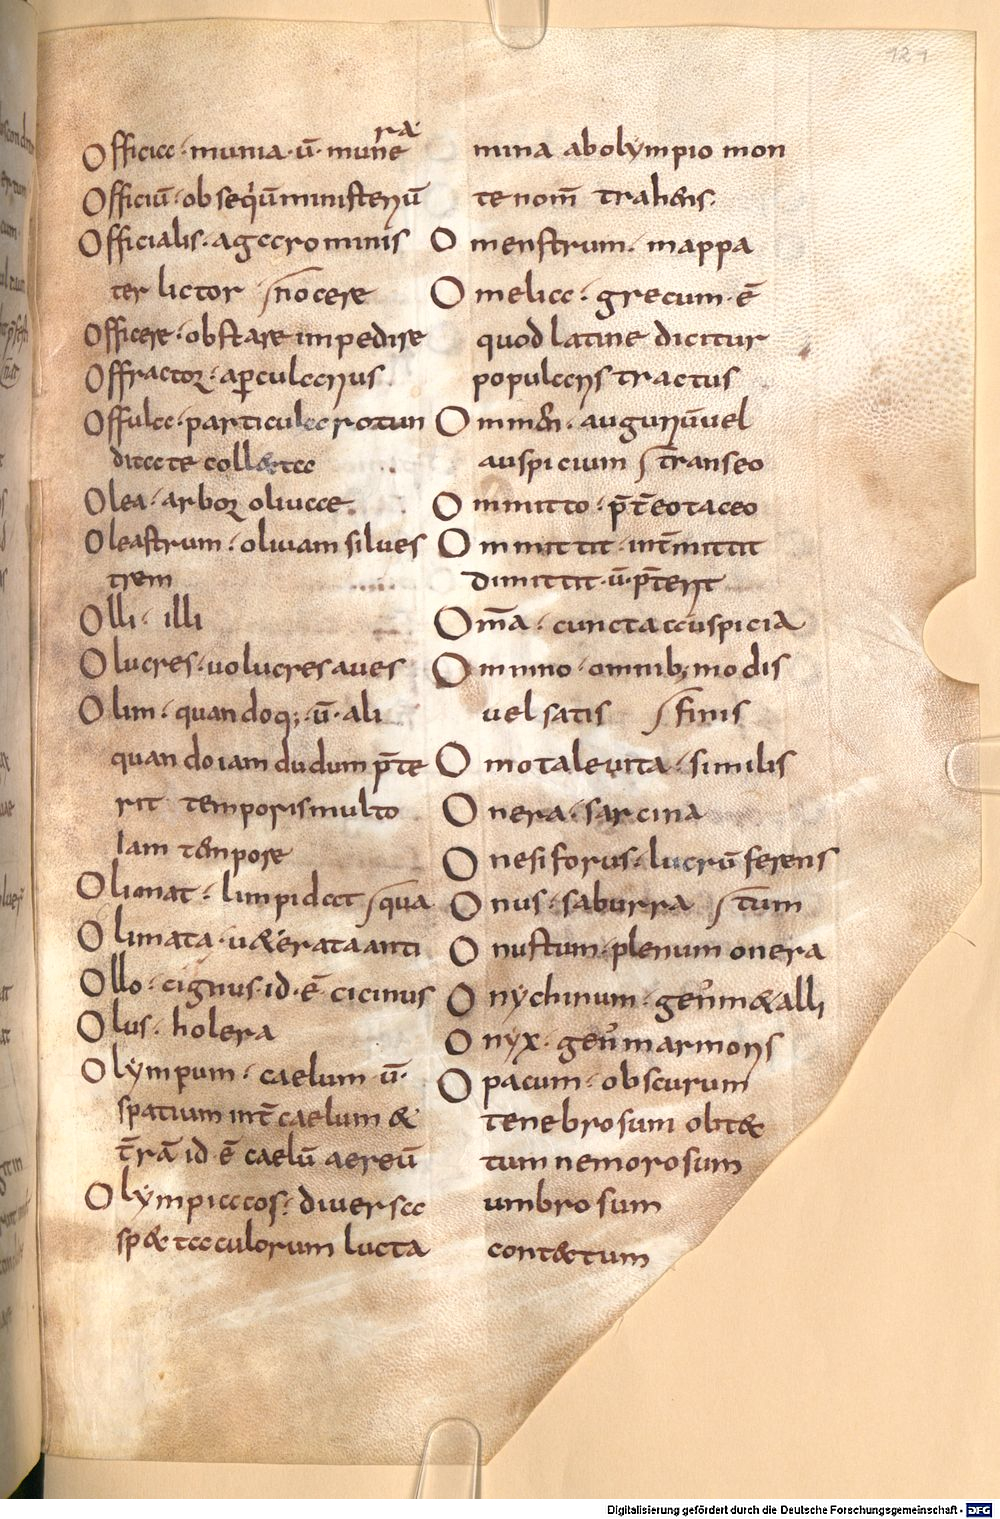 121
Officia · munia · ū · mune
ra
Officiū · obseq̇ūministeriū
Officialis · agerominis
ter lictor nocere
Officere · obstare impedire
Offractor · aꝑcularius
Offulæ · particulæ rotun
ditate collectæ
Olea · arbor olivæ
Oleastrum · olivam silves
trem
Olli · illi
Olucres · volucres aves
Olim · quandoq; · ū · ali
quando iam dudum p̄te
rit temporis multo
iam tempore
Olimat · limpidat qua
Olimata · vel&erata anti
Ollo · cignus · id · ē cicinus
Olus · holera
Olympum · caelum · ū ·
spatium int̄ caelum &
t̄rā id ē caelū aereū
Olympiacos · diversæ
spectaculorum lucta
mina abolympio mon
te nom̄ trahens ·
Omenstrum · mappa
Omelia · grecum · ē
quod latine dicitur
popularis tractus
Omm̄ · auguriū vel
auspicium transeo
Ommitto · p̄t̄eo taceo
Ommittit · int̄mittit
dimittit · ū · p̄t̄erit
Om̄a · cuncta auspicia
Ommino · omnib; modis
vel satis finis
Omotalevita · similis
Onera · sarcina
Onesiforus · lucrū ferens
Onus · saburra tum
Onustum · plenum onera
Onychinum · gen̄ m&alli
Onyx · gen̄ marmoris
Opacum · obscurum
tenebrosum obt&
tum nemorosum
umbrosum
cont&tum
Digitalisierung gefördert durch die Deutsche Forschungsgemeinschaft - DFG